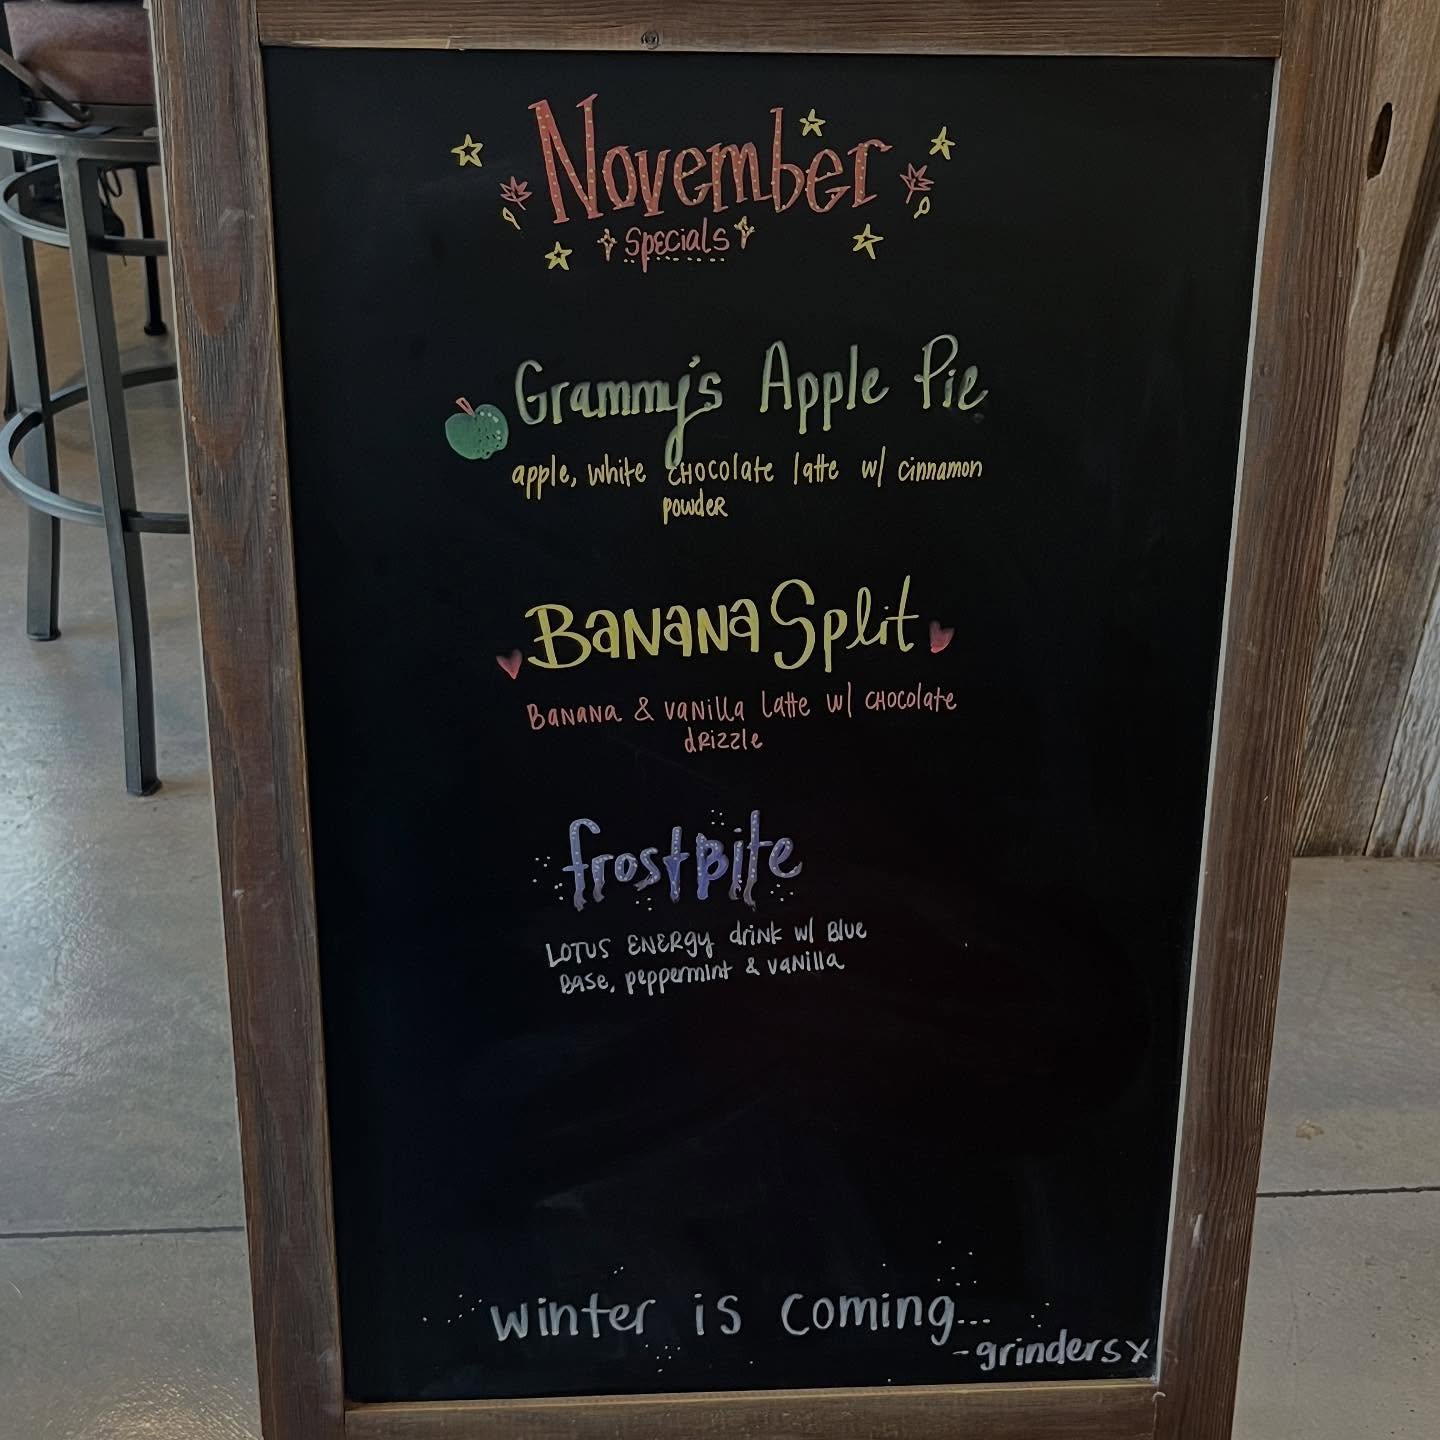 November
Specials
Grammy's Apple Pie
apple, white chocolate latte w/ cinnamon
powder
Banana Split
Banana & vanilla latte w/ chocolate
drizzle
frostbite
Lotus Energy drink w/ Blue
Base, peppermint & vanilla
winter is coming...
-grinders x